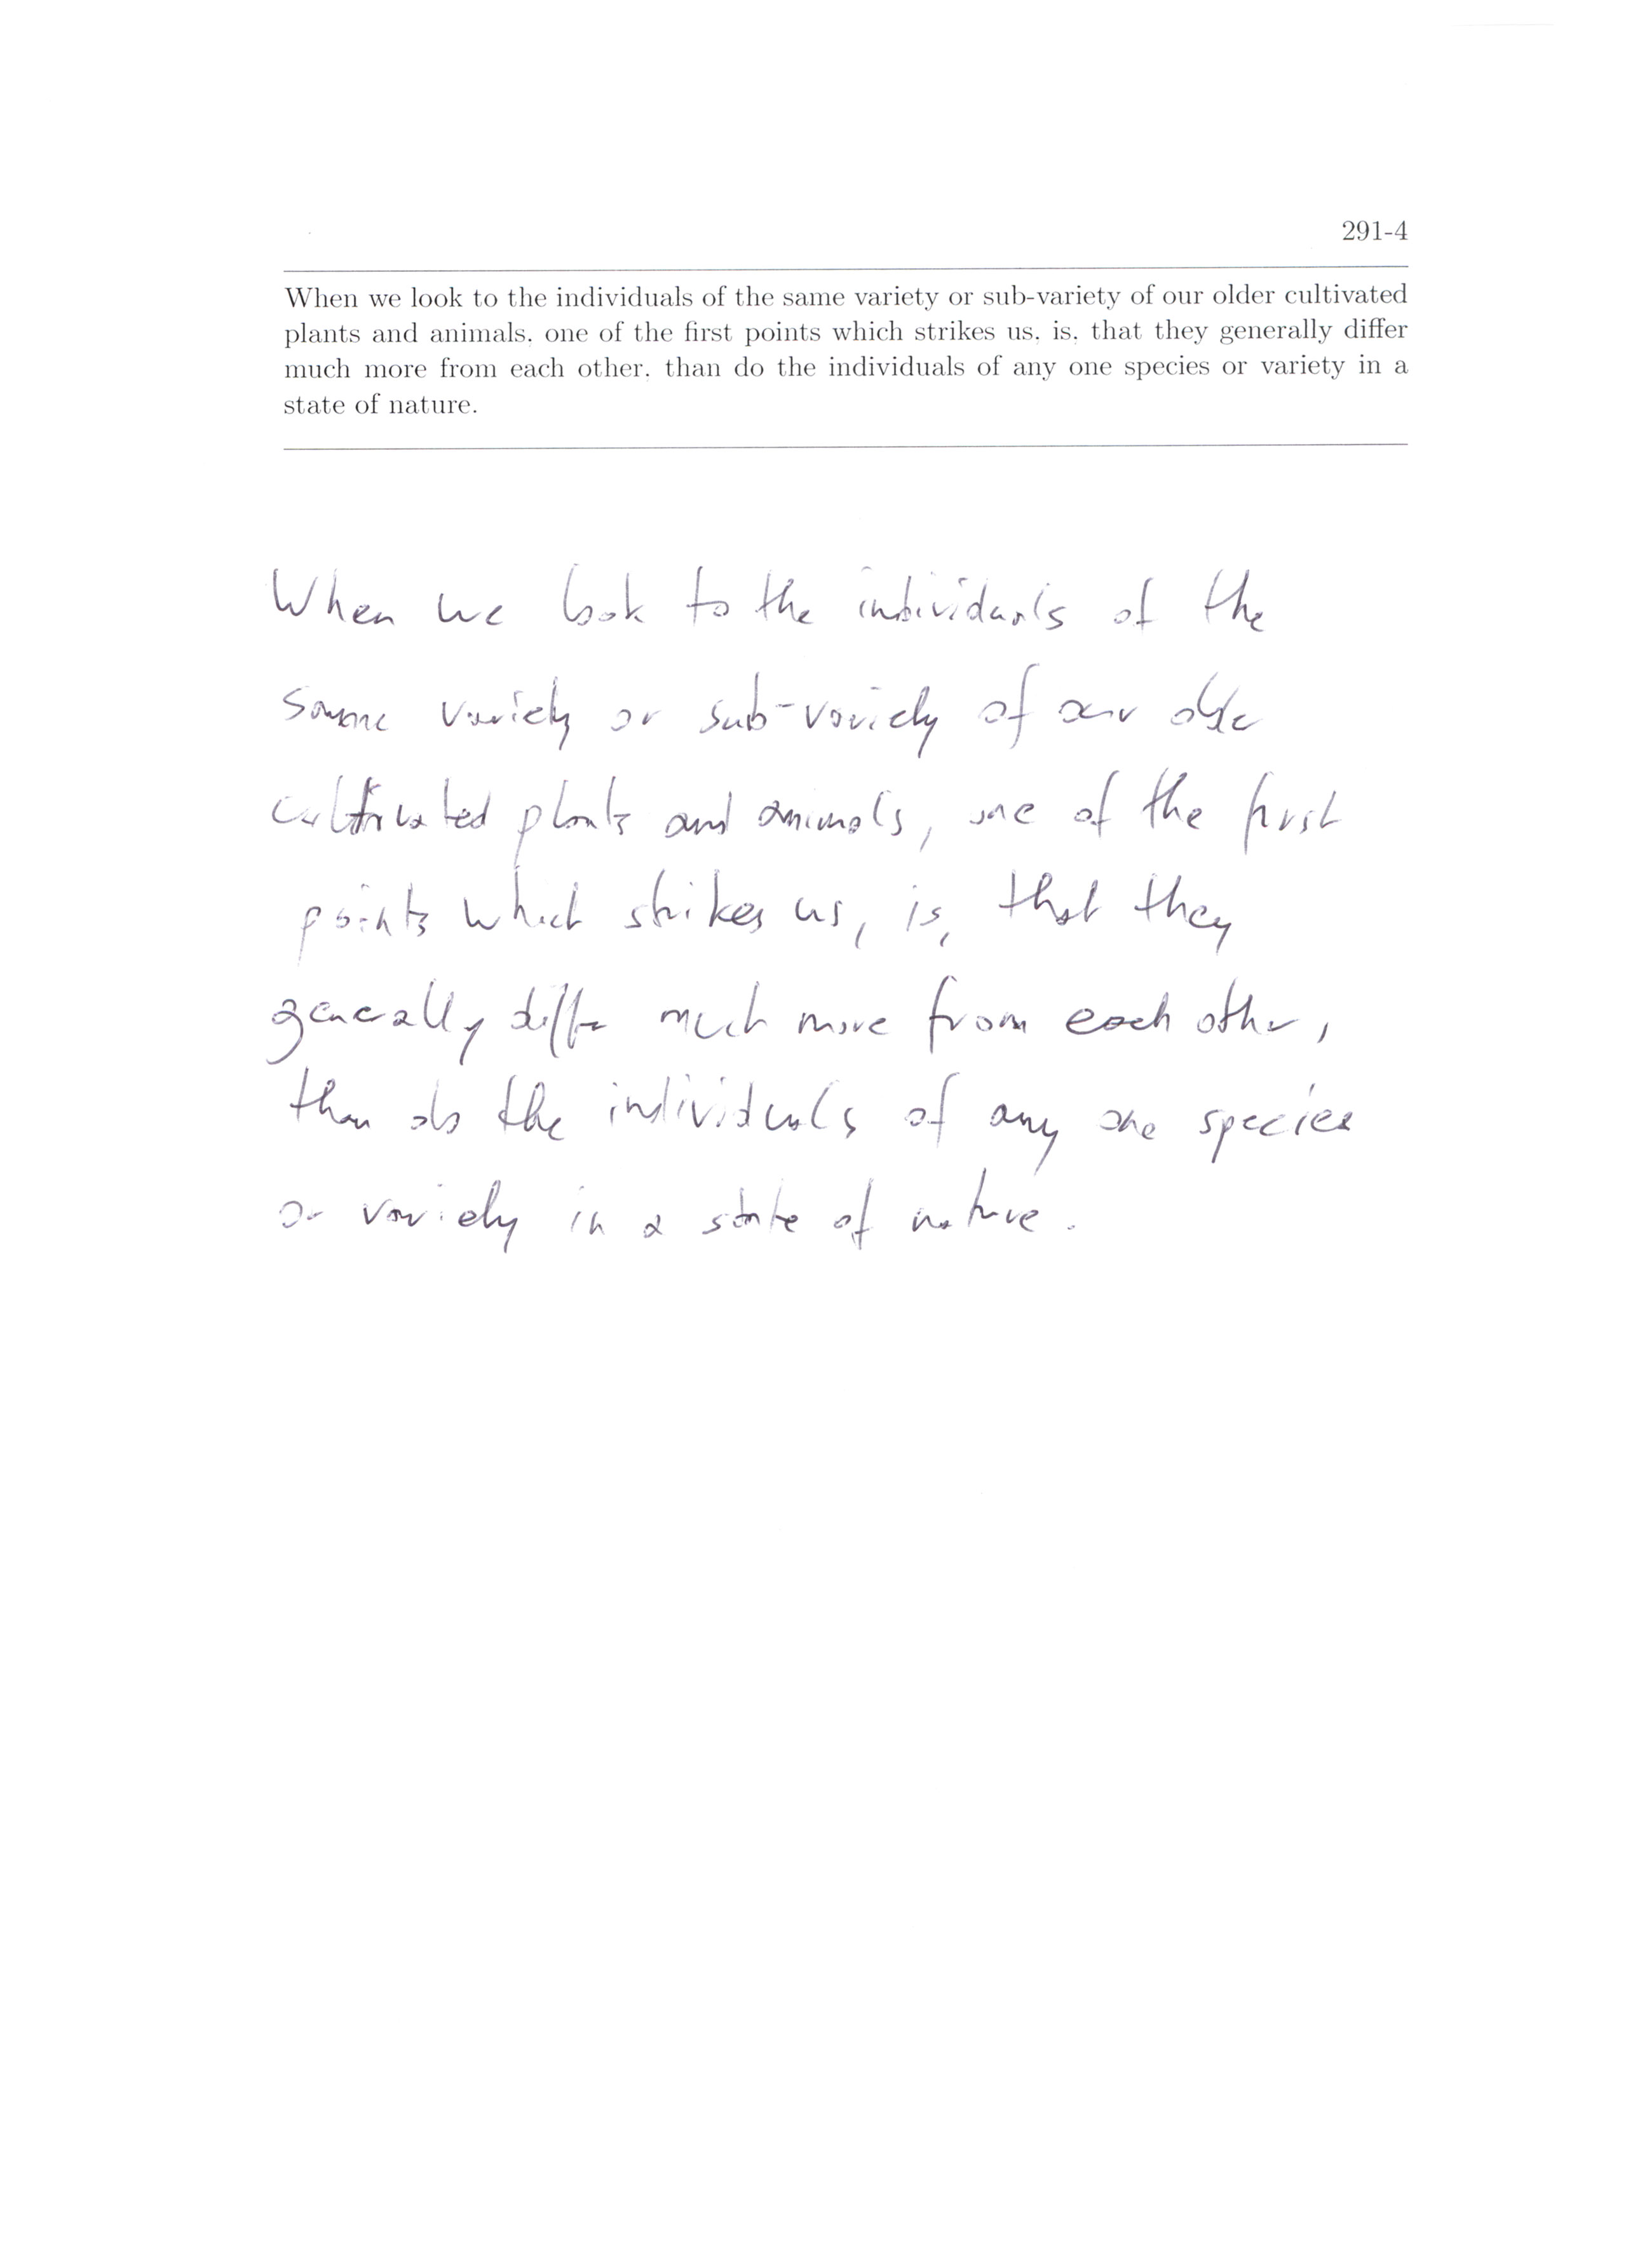 291-4
When we look to the individuals of the same variety or sub-variety of our older cultivated
plants and animals, one of the first points which strikes us, is, that they generally differ
much more from each other, than do the individuals of any one species or variety in a
state of nature.
When we look to the individuals of the
same variety or sub-variety of our older
cultivated plants and animals, one of the first
points which strikes us, is, that they
generally differ much more from each other,
than do the individuals of any one species
or variety in a state of nature.